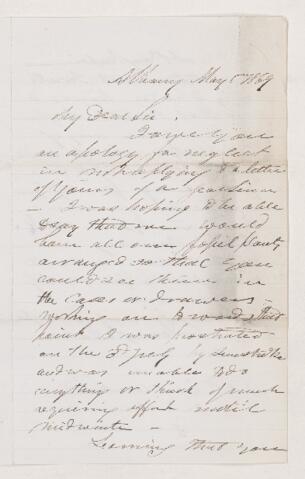 Albany May 5th 1869
My Dear Sir.
I owe you
an apology for neglect
in not replying to a letter
of yours of a year since
- I was hoping to be able
to say that we would
have all our fossil plants
arranged so that you
could see them in
the cases or drawers -
Working on
I was prostrated
on the 3d of by sunstroke
and was unable to do
anything or think of much
requiring effort until
midwinter -
Learning that you